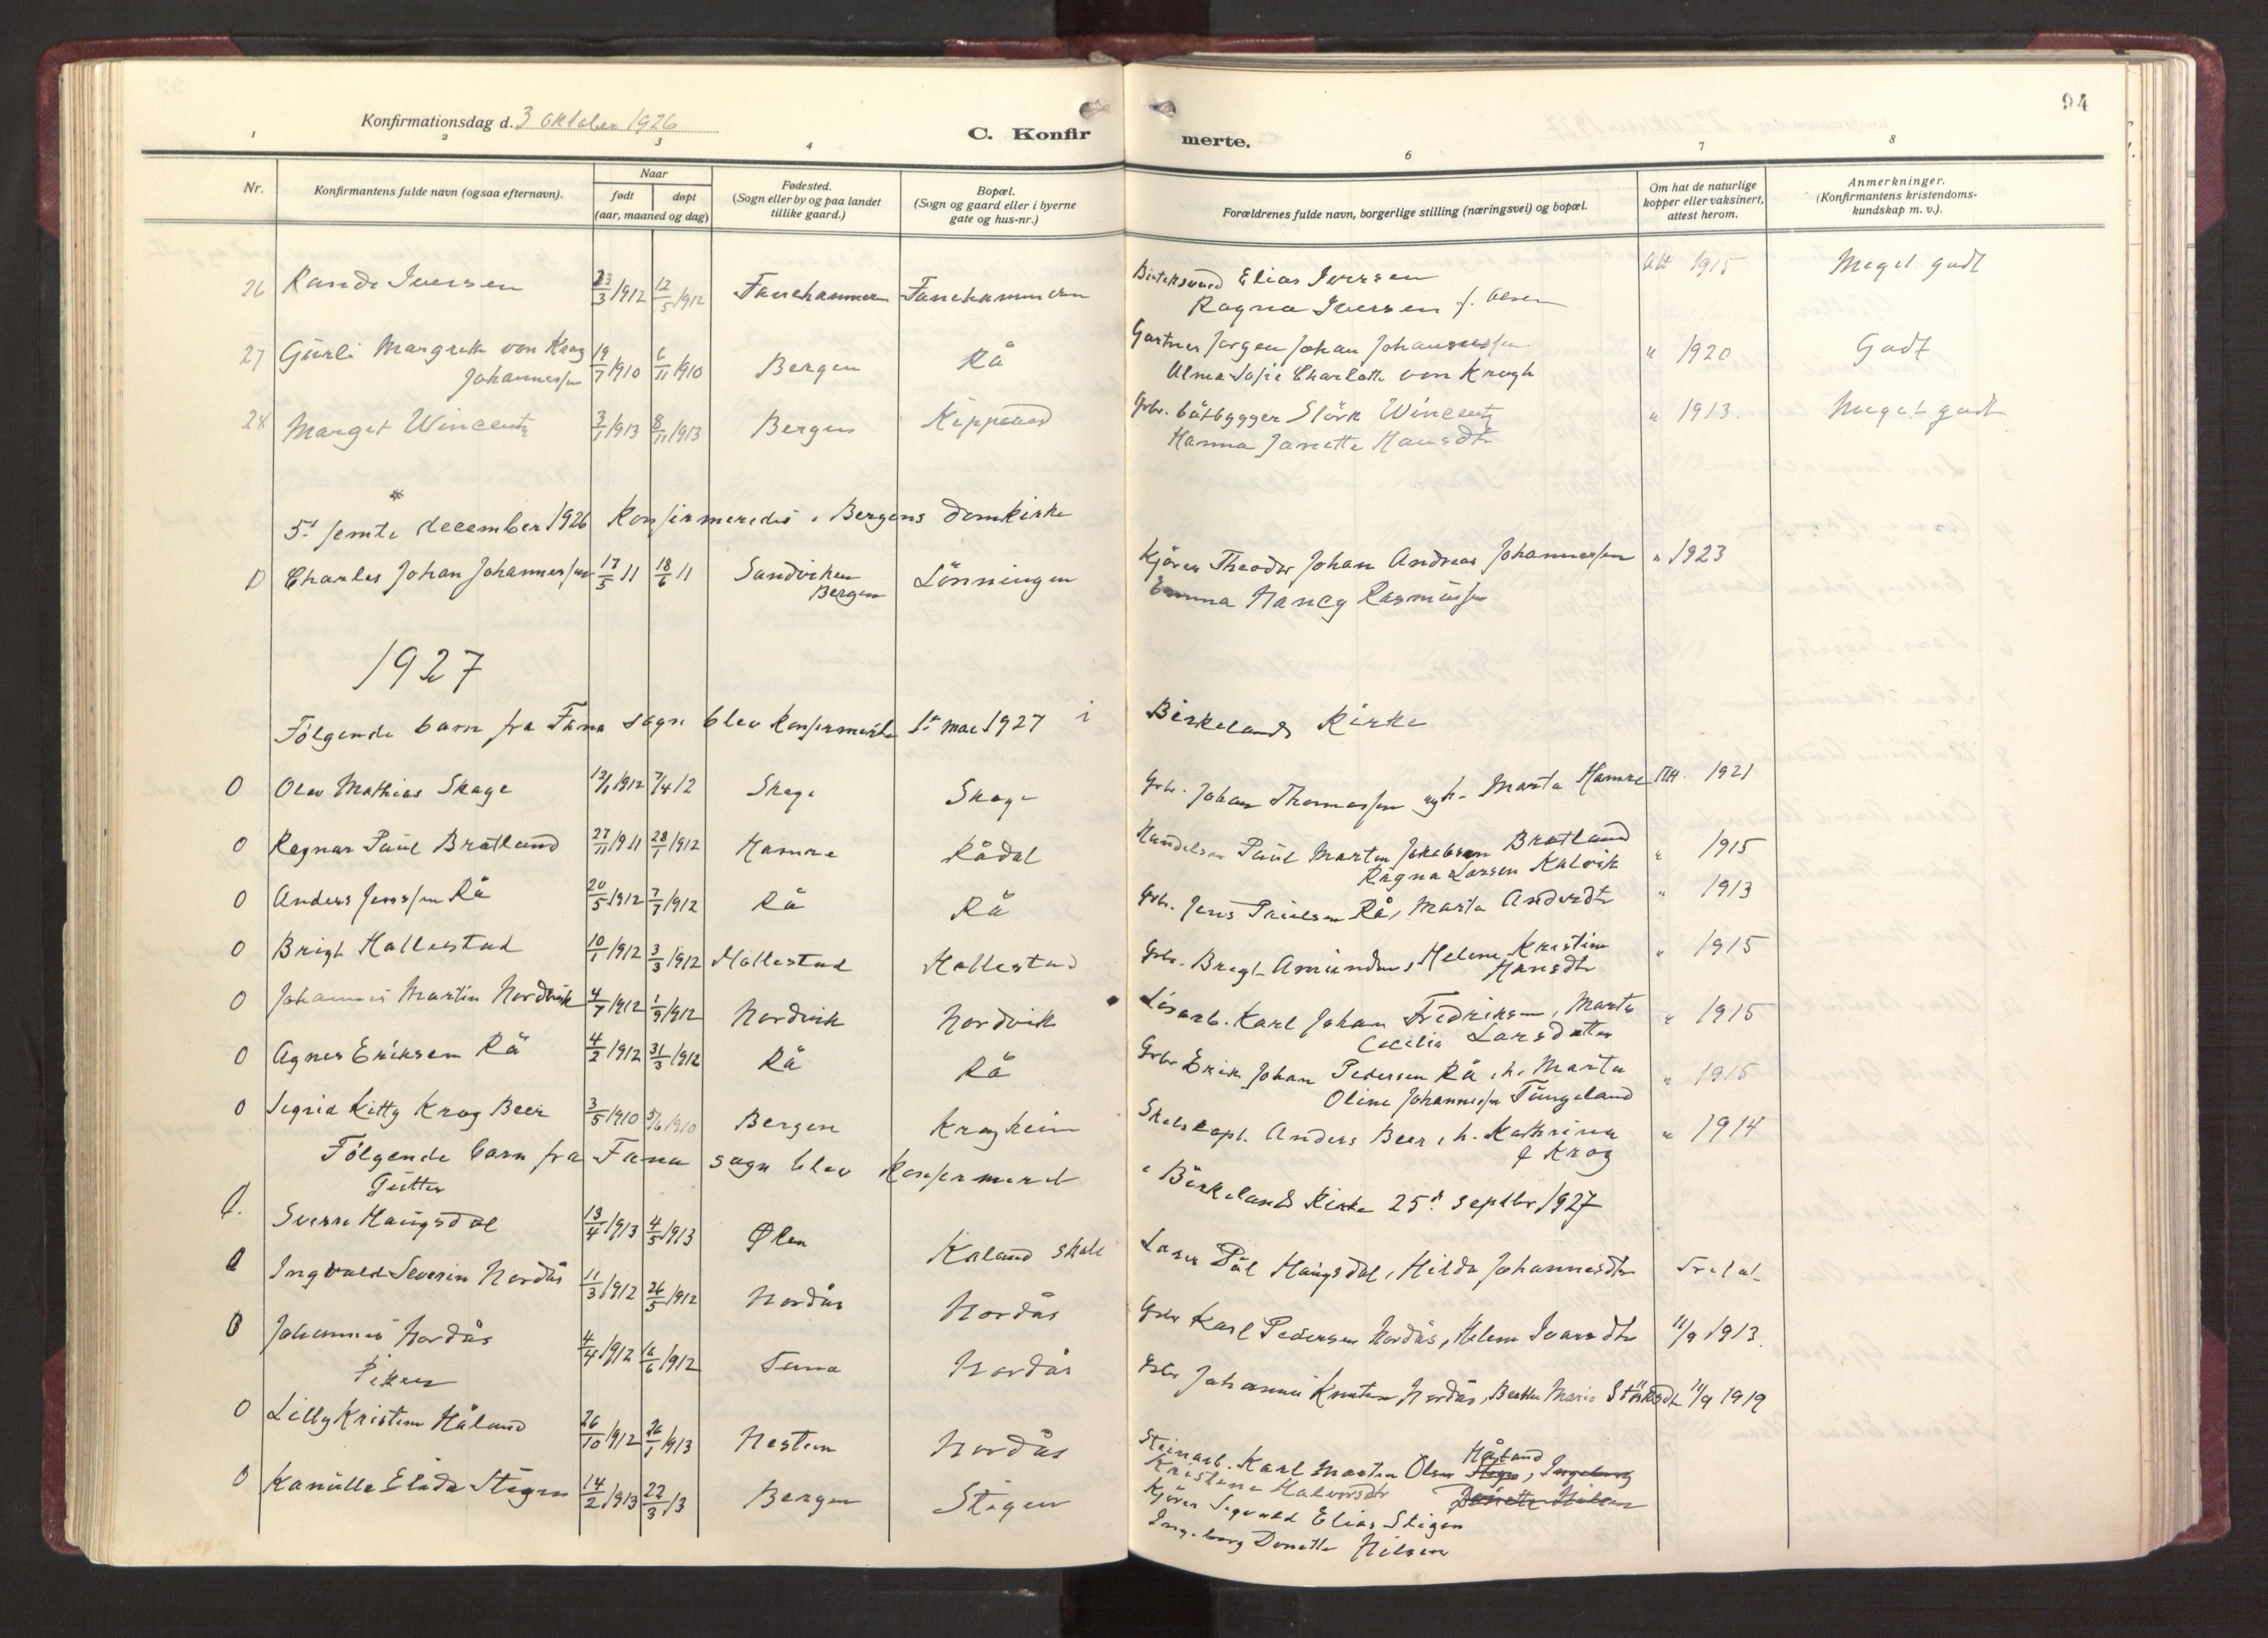 94
Konfirmationsdag d. 3 oktober 1926
C. Konfirmerte.
1 2 3 4 6 7 8
Nr.
Konfirmantens fulde navn (ogsaa efternavn).
Naar
født døpt
(aar, maaned og dag)
Fødested.
(Sogn eller by og paa landet
tillike gaard.)
Bopæl.
(Sogn og gaard eller i byerne
gate og hus-nr.)
Forældrenes fulde navn, borgerlige stilling (næringsvei) og bopæl.
Om hat de naturlige
kopper eller vaksinert,
attest herom.
Anmerkninger.
(Konfirmantens kristendoms-
kundskap m. v.).
26 Randi Iversen 23/3 1912 12/5 1912 Fanehammeren Fanehammeren Elias Iversen Att 1915 Meget godt
Ragna Iversen f. Olsen
27 Gürli Margrethe von Krog 19/7 1910 6/11 1910 Bergen Rå Gartner Jørgen Johan Johannessen " 1920 Godt
Johannessen Alma Sofie Charlotte von Krogh
28 Margit Wincentz 3/1 1913 8/11 1913 Bergen Kippoved Grbr. båtbygger Störk Wincentz " 1913. Meget godt
Hanna Janette Hansdtr
5te femte december 1926 konfirmeredes i Bergens Domkirke
D Charles Johan Johannessen 17/5 11 18/6 11 Sandviken Lönningen Kjörer Theodor Johan Andreas Johannessen " 1923
Bergen Emma Nancy Rasmüssen
1927
Følgende barn fra Fana sogn blev konfirmerte 1ste mai 1927 i Birkelands Kirke
O Olav Mathias Skage 13/1 1912 7/4 12 Skage Skage Grbr. Johan Thomassen og h. Marta Hamre Att. 1921
O Ragnar Paul Bratland 27/11 1911 28/1 1912 Hamre Rådal Handelsm Paul Martin Jakobsen Bratland " 1915
Ragna Larsen Kalvik
O Anders Jenssen Rå 20/5 1912 7/7 1912 Rå Rå Grbr. Jens Paulsen Rå, Marta Andersdtr " 1913
O Brigt Hallestad 10/1 1912 3/3 1912 Hallestad Hallestad Grbr. Brigt Amundsen, Helene Kristine " 1915
Hansdtr
O Johannes Martin Nordvik 4/7 1912 1/9 1912 Nordvik Nordvik Lösarb. Karl Johan Fredriksen, Marta " 1915
Cecilia Larsdatter
O Agnes Eriksen Rå 4/2 1912 31/3 1912 Rå Rå Grbr Erik Johan Pedersen Rå, h. Marta " 1915
Oline Johannessen Tüngeland
O Sigrid Kitty Krog Beer 3/5 1910 5/6 1910 Bergen Kragheim Skibskapt. Anders Beer, h. Kathrina " 1914
f Krog
Følgende barn fra Fana sogn blev konfirmeret i Birkelands Kirke 25de septbr 1927
Gütter
O. Sverre Haugsdal 13/4 1913 4/5 1913 Ølen Kaland skole Lærer Pål Haugsdal, Hilda Johannesdtr
O Ingvald Severin Nordås 11/3 1912 26/5 1912 Nordås Nordås Grbr Karl Pedersen Nordås, Helene Ivarsdtr 11/9 1913.
O Johannes Nordås 4/4 1912 16/6 1912 Fana Nordås Grbr Johannes Knutsen Nordås, Berthe Marie Störksdtr 11/9 1919
Piker
O Lilly Kristine Håland 26/10 1912 26/1 1913 Nestun Nordås Steinarb. Karl Martin Olsen Håland
Kristene Halvorsdtr
O Kamille Elida Stigen 14/2 1913 22/3 13 Bergen Stigen Kjörer Sigvald Elias Stigen
Ingeborg Donette Nilsen